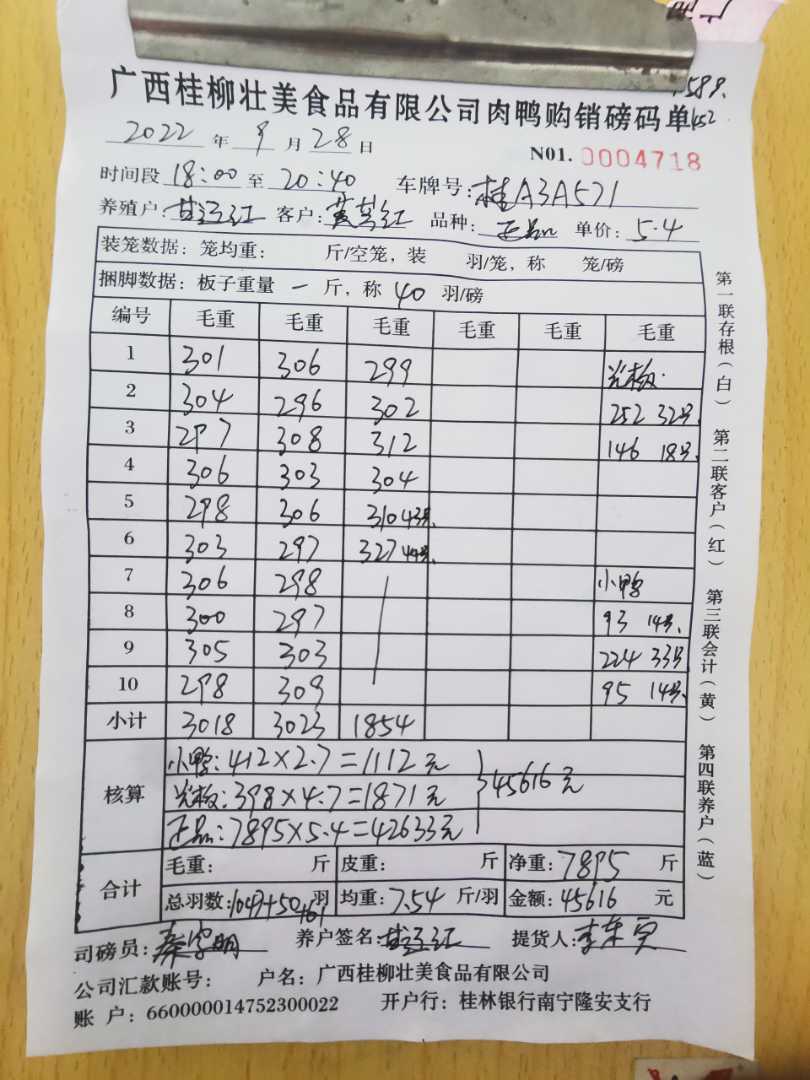 1589.
452
广西桂柳壮美食品有限公司肉鸭购销磅码单
2022 年 9 月 28 日
N01. 0004718
时间段 18:00 至 20:40 车牌号: 桂A3A571
养殖户: 甘 红 客户: 红 品种: 正品 单价: 5.4
装笼数据: 笼均重: 斤/空笼, 装 羽/笼, 称 笼/磅
捆脚数据: 板子重量 一 斤, 称 40 羽/磅
编号 毛重 毛重 毛重 毛重 毛重 毛重
1 301 306 299 光板.
2 304 296 302 252 32号.
3 297 308 312 146 18号.
4 306 303 304
5 298 306 310 43号.
6 303 297 327 44号.
7 306 298 小鸭
8 300 297 93 14号.
9 305 303 224 33号
10 298 309 95 14号.
小计 3018 3023 1854
核算
小鸭: 412×2.7=1112元
光板: 398×4.7=1871元
正品: 7895×5.4=42633元
45616元
合计
毛重: 斤 皮重: 斤 净重: 7895 斤
总羽数: 1047+50+61 羽 均重: 7.54 斤/羽 金额: 45616 元
司磅员: 明 养户签名: 甘 红 提货人: 李
公司汇款账号: 户名: 广西桂柳壮美食品有限公司
账 户: 660000014752300022 开户行: 桂林银行南宁隆安支行
第一联存根(白) 第二联客户(红) 第三联会计(黄) 第四联养户(蓝)